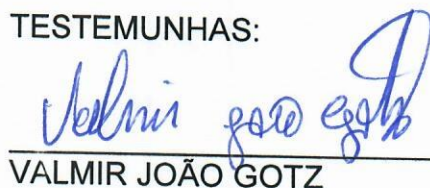 TESTEMUNHAS:
Valmir João Gotz
VALMIR JOÃO GOTZ